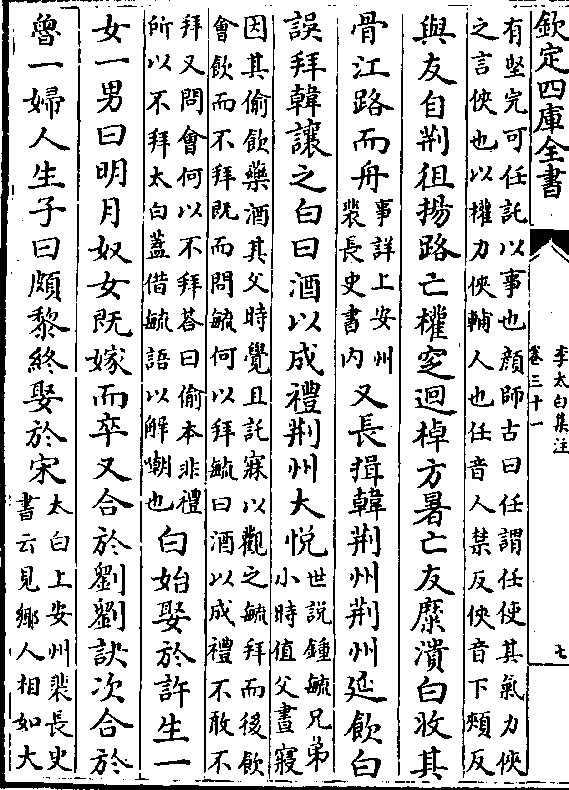 欽定四庫全書
李太白集注
卷三十一
七
有堅完可任託以事也顔師古曰任謂任使其氣力俠
之言俠也以權力俠輔人也任音人禁反俠音下頰反
與友自荆徂揚路亡權窆迴棹方暑亡友糜潰白收其
骨江路而舟
事詳上安州
裴長史書内
又長揖韓荆州荆州延飲白
誤拜韓讓之白曰酒以成禮荆州大悦
世説鍾毓兄弟
小時值父晝寢
因其偷飲藥酒其父時覺且託寐以觀之毓拜而後飲
會飲而不拜既而問毓何以拜毓曰酒以成禮不敢不
拜又問會何以不拜荅曰偷本非禮
所以不拜太白蓋借毓語以解嘲也
白始娶於許生一
女一男曰明月奴女既嫁而卒又合於劉劉訣次合於
魯一婦人生子曰頗黎終娶於宋
太白上安州裴長史
書云見鄉人相如大